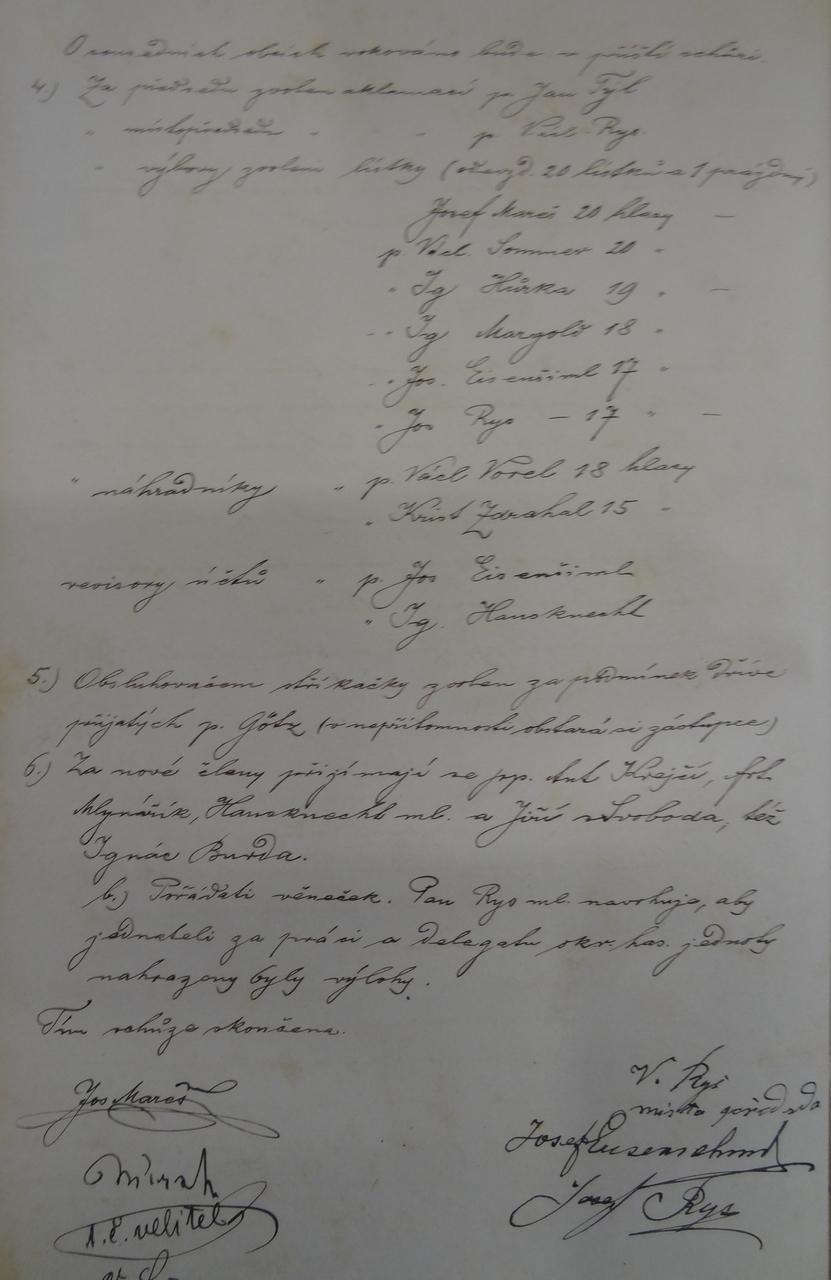 O sousedních obcích rokováno bude v příští schůzi.
4.) Za předsedu zvolen aklamací p. Jan Tyl
" místopředsedu " " p. Václ. Rys.
" výbory zvoleni lístky (odevzd. 20 lístků a 1 prázdný)
Josef Mareš 20 hlasy —
p. Václ. Sommer 20 "
" Ig Hůrka 19 " —
" Ig Margold 18 "
" Jos. Eisenšiml 17 "
" Jos Rys — 17 " —
" náhradníky " p. Václ Vorel 18 hlasy
" Krist Zdrahal 15 "
revisory účtů " p. Jos Eisenšiml
" Ig. Hausknecht
5.) Obsluhovačem stříkačky zvolen za podmínek dříve
přijatých p. Götz (v nepřítomnosti obstará si zástupce)
6.) Za nové členy přijímají se pp. Ant Krejčí, Ant.
Mlynářík, Hausknecht ml. a Jiří Svoboda, též
Ignác Burda.
b.) Pořádati věneček. Pan Rys ml. navrhuje, aby
jednateli za práci a delegatu okr. has. jednoty
nahrazeny byly výlohy.
Tím schůze skončena.
Jos Mareš
V. Rys
místo předseda
Josef Eisenschiml
t. č. velitel
Josef Rys